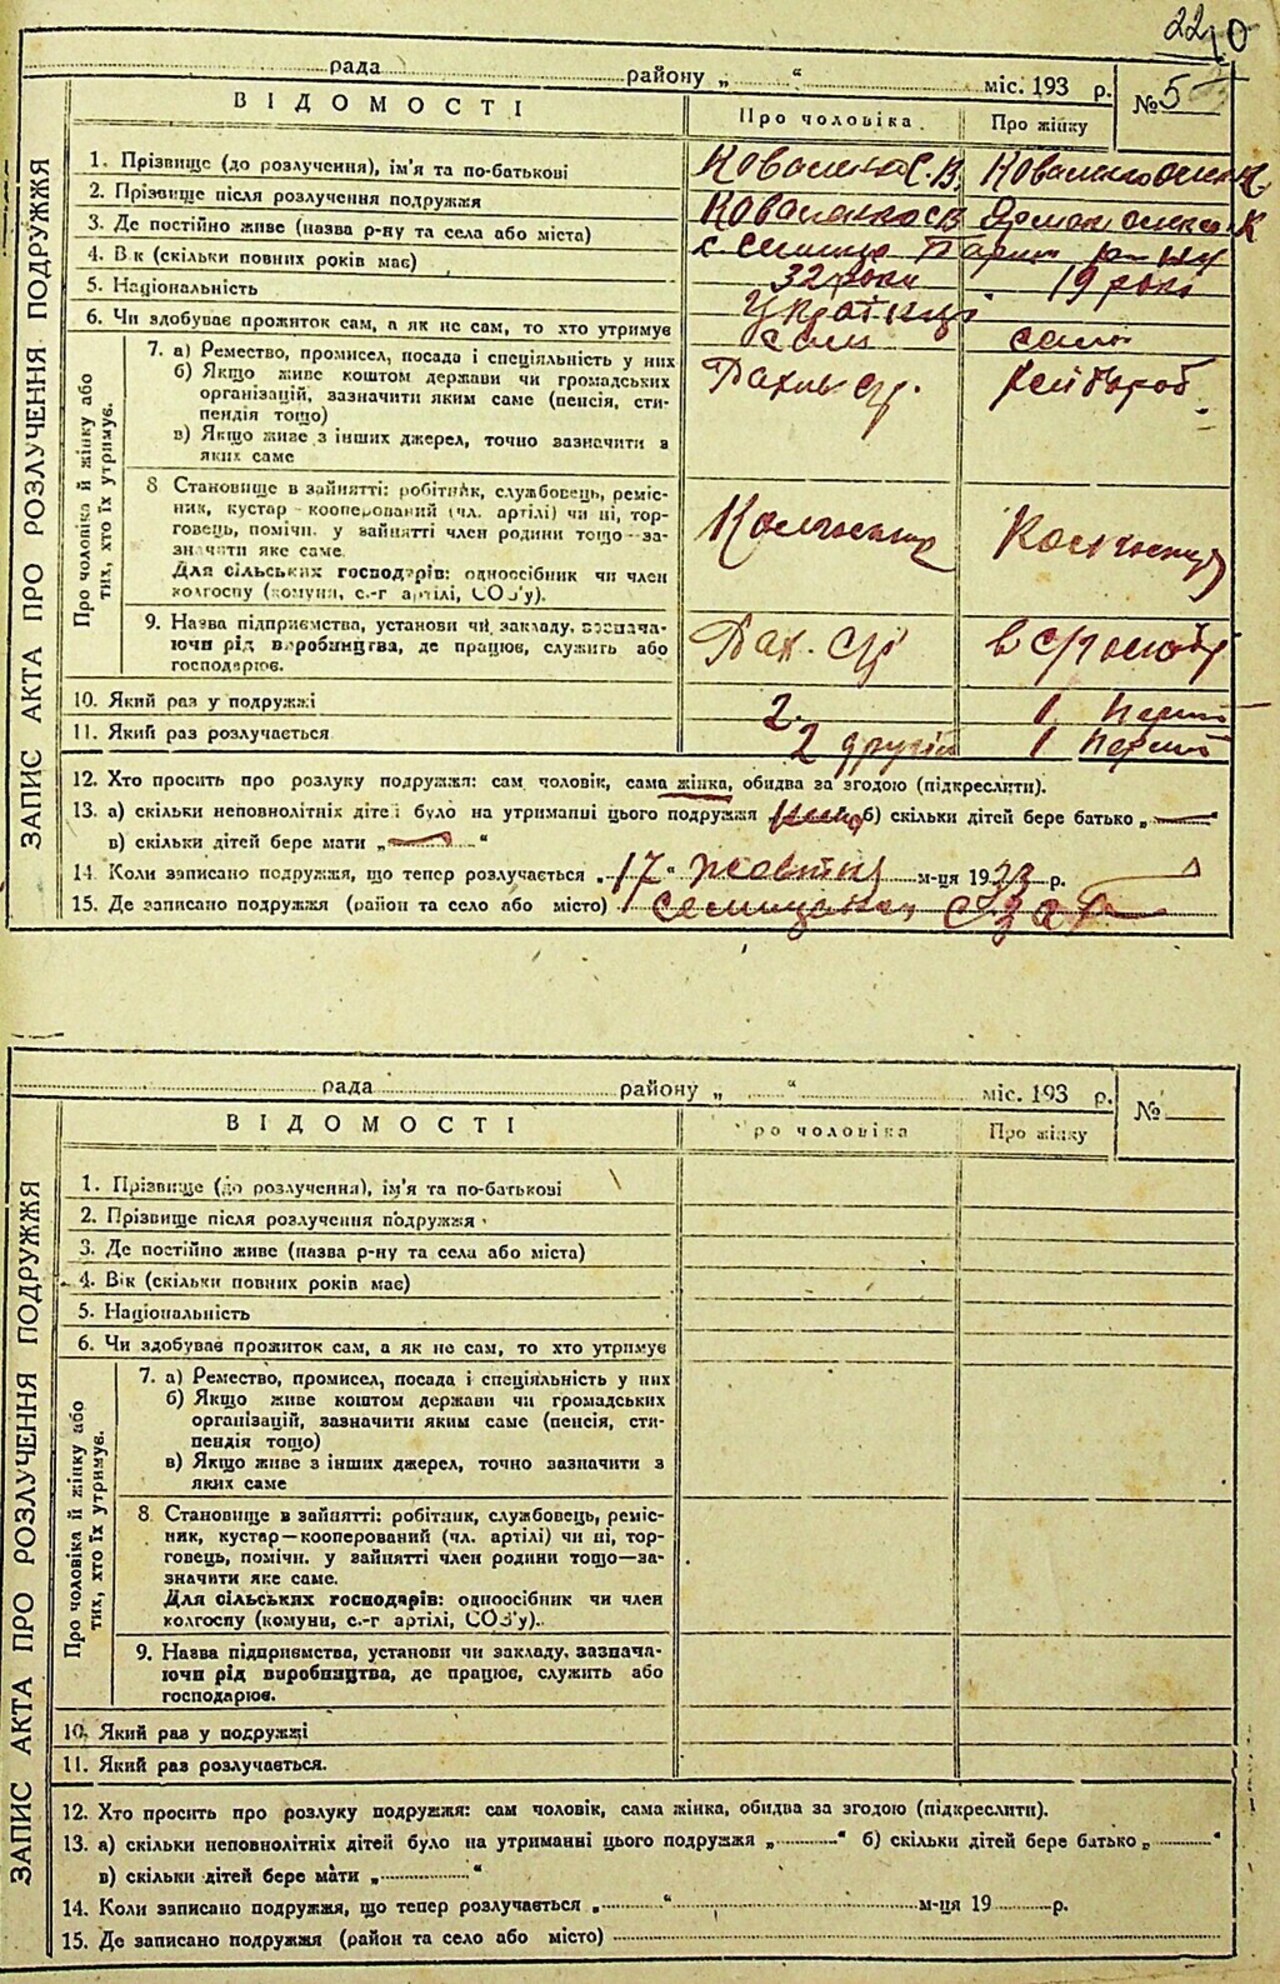 22
10
рада району „ “ міс. 193 р. № 5
ВІДОМОСТІ Про чоловіка Про жінку
ЗАПИС АКТА ПРО РОЗЛУЧЕННЯ ПОДРУЖЖЯ
1. Прізвище (до розлучення), ім'я та по-батькові Коваленко С.В. Коваленко К
2. Прізвище після розлучення подружжя Коваленко СВ К
3. Де постійно живе (назва р-ну та села або міста) с.
4. Вік (скільки повних років має) 32 роки 19 рокі
5. Національність Українці
6. Чи здобуває прожиток сам, а як не сам, то хто утримує сам сама
Про чоловіка й жінку або тих, хто їх утримує.
7. а) Ремество, промисел, посада і спеціяльність у них
б) Якщо живе коштом держави чи громадських
організацій, зазначити яким саме (пенсія, сти-
пендія тощо)
в) Якщо живе з інших джерел, точно зазначити з
яких саме
8 Становище в зайнятті: робітник, службовець, реміс-
ник, кустар—кооперований (чл. артілі) чи ні, тор-
говець, помічн. у зайнятті член родини тощо—за-
значити яке саме.
Для сільських господарів: одноосібник чи член
колгоспу (комуни, с.-г артілі, СОЗ'у).
9. Назва підприємства, установи чи закладу, зазнача-
ючи рід виробництва, де працює, служить або
господарює.
10. Який раз у подружжі 2. 1
11. Який раз розлучається 2 другій 1
12. Хто просить про розлуку подружжя: сам чоловік, сама жінка, обидва за згодою (підкреслити).
13. а) скільки неповнолітніх дітей було на утриманні цього подружжя б) скільки дітей бере батько „—“
в) скільки дітей бере мати „—“
14. Коли записано подружжя, що тепер розлучається „17“ жовтня м-ця 1933 р.
15. Де записано подружжя (район та село або місто)
рада району „ “ міс. 193 р. №
ВІДОМОСТІ Про чоловіка Про жінку
ЗАПИС АКТА ПРО РОЗЛУЧЕННЯ ПОДРУЖЖЯ
1. Прізвище (до розлучення), ім'я та по-батькові
2. Прізвище після розлучення подружжя
3. Де постійно живе (назва р-ну та села або міста)
4. Вік (скільки повних років має)
5. Національність
6. Чи здобуває прожиток сам, а як не сам, то хто утримує
Про чоловіка й жінку або тих, хто їх утримує.
7. а) Ремество, промисел, посада і спеціяльність у них
б) Якщо живе коштом держави чи громадських
організацій, зазначити яким саме (пенсія, сти-
пендія тощо)
в) Якщо живе з інших джерел, точно зазначити з
яких саме
8 Становище в зайнятті: робітник, службовець, реміс-
ник, кустар—кооперований (чл. артілі) чи ні, тор-
говець, помічн. у зайнятті член родини тощо—за-
значити яке саме.
Для сільських господарів: одноосібник чи член
колгоспу (комуни, с.-г артілі, СОЗ'у).
9. Назва підприємства, установи чи закладу, зазнача-
ючи рід виробництва, де працює, служить або
господарює.
10. Який раз у подружжі
11. Який раз розлучається.
12. Хто просить про розлуку подружжя: сам чоловік, сама жінка, обидва за згодою (підкреслити).
13. а) скільки неповнолітніх дітей було на утриманні цього подружжя „ “ б) скільки дітей бере батько „ “
в) скільки дітей бере мати „ “
14. Коли записано подружжя, що тепер розлучається „ “ м-ця 19 р.
15. Де записано подружжя (район та село або місто)